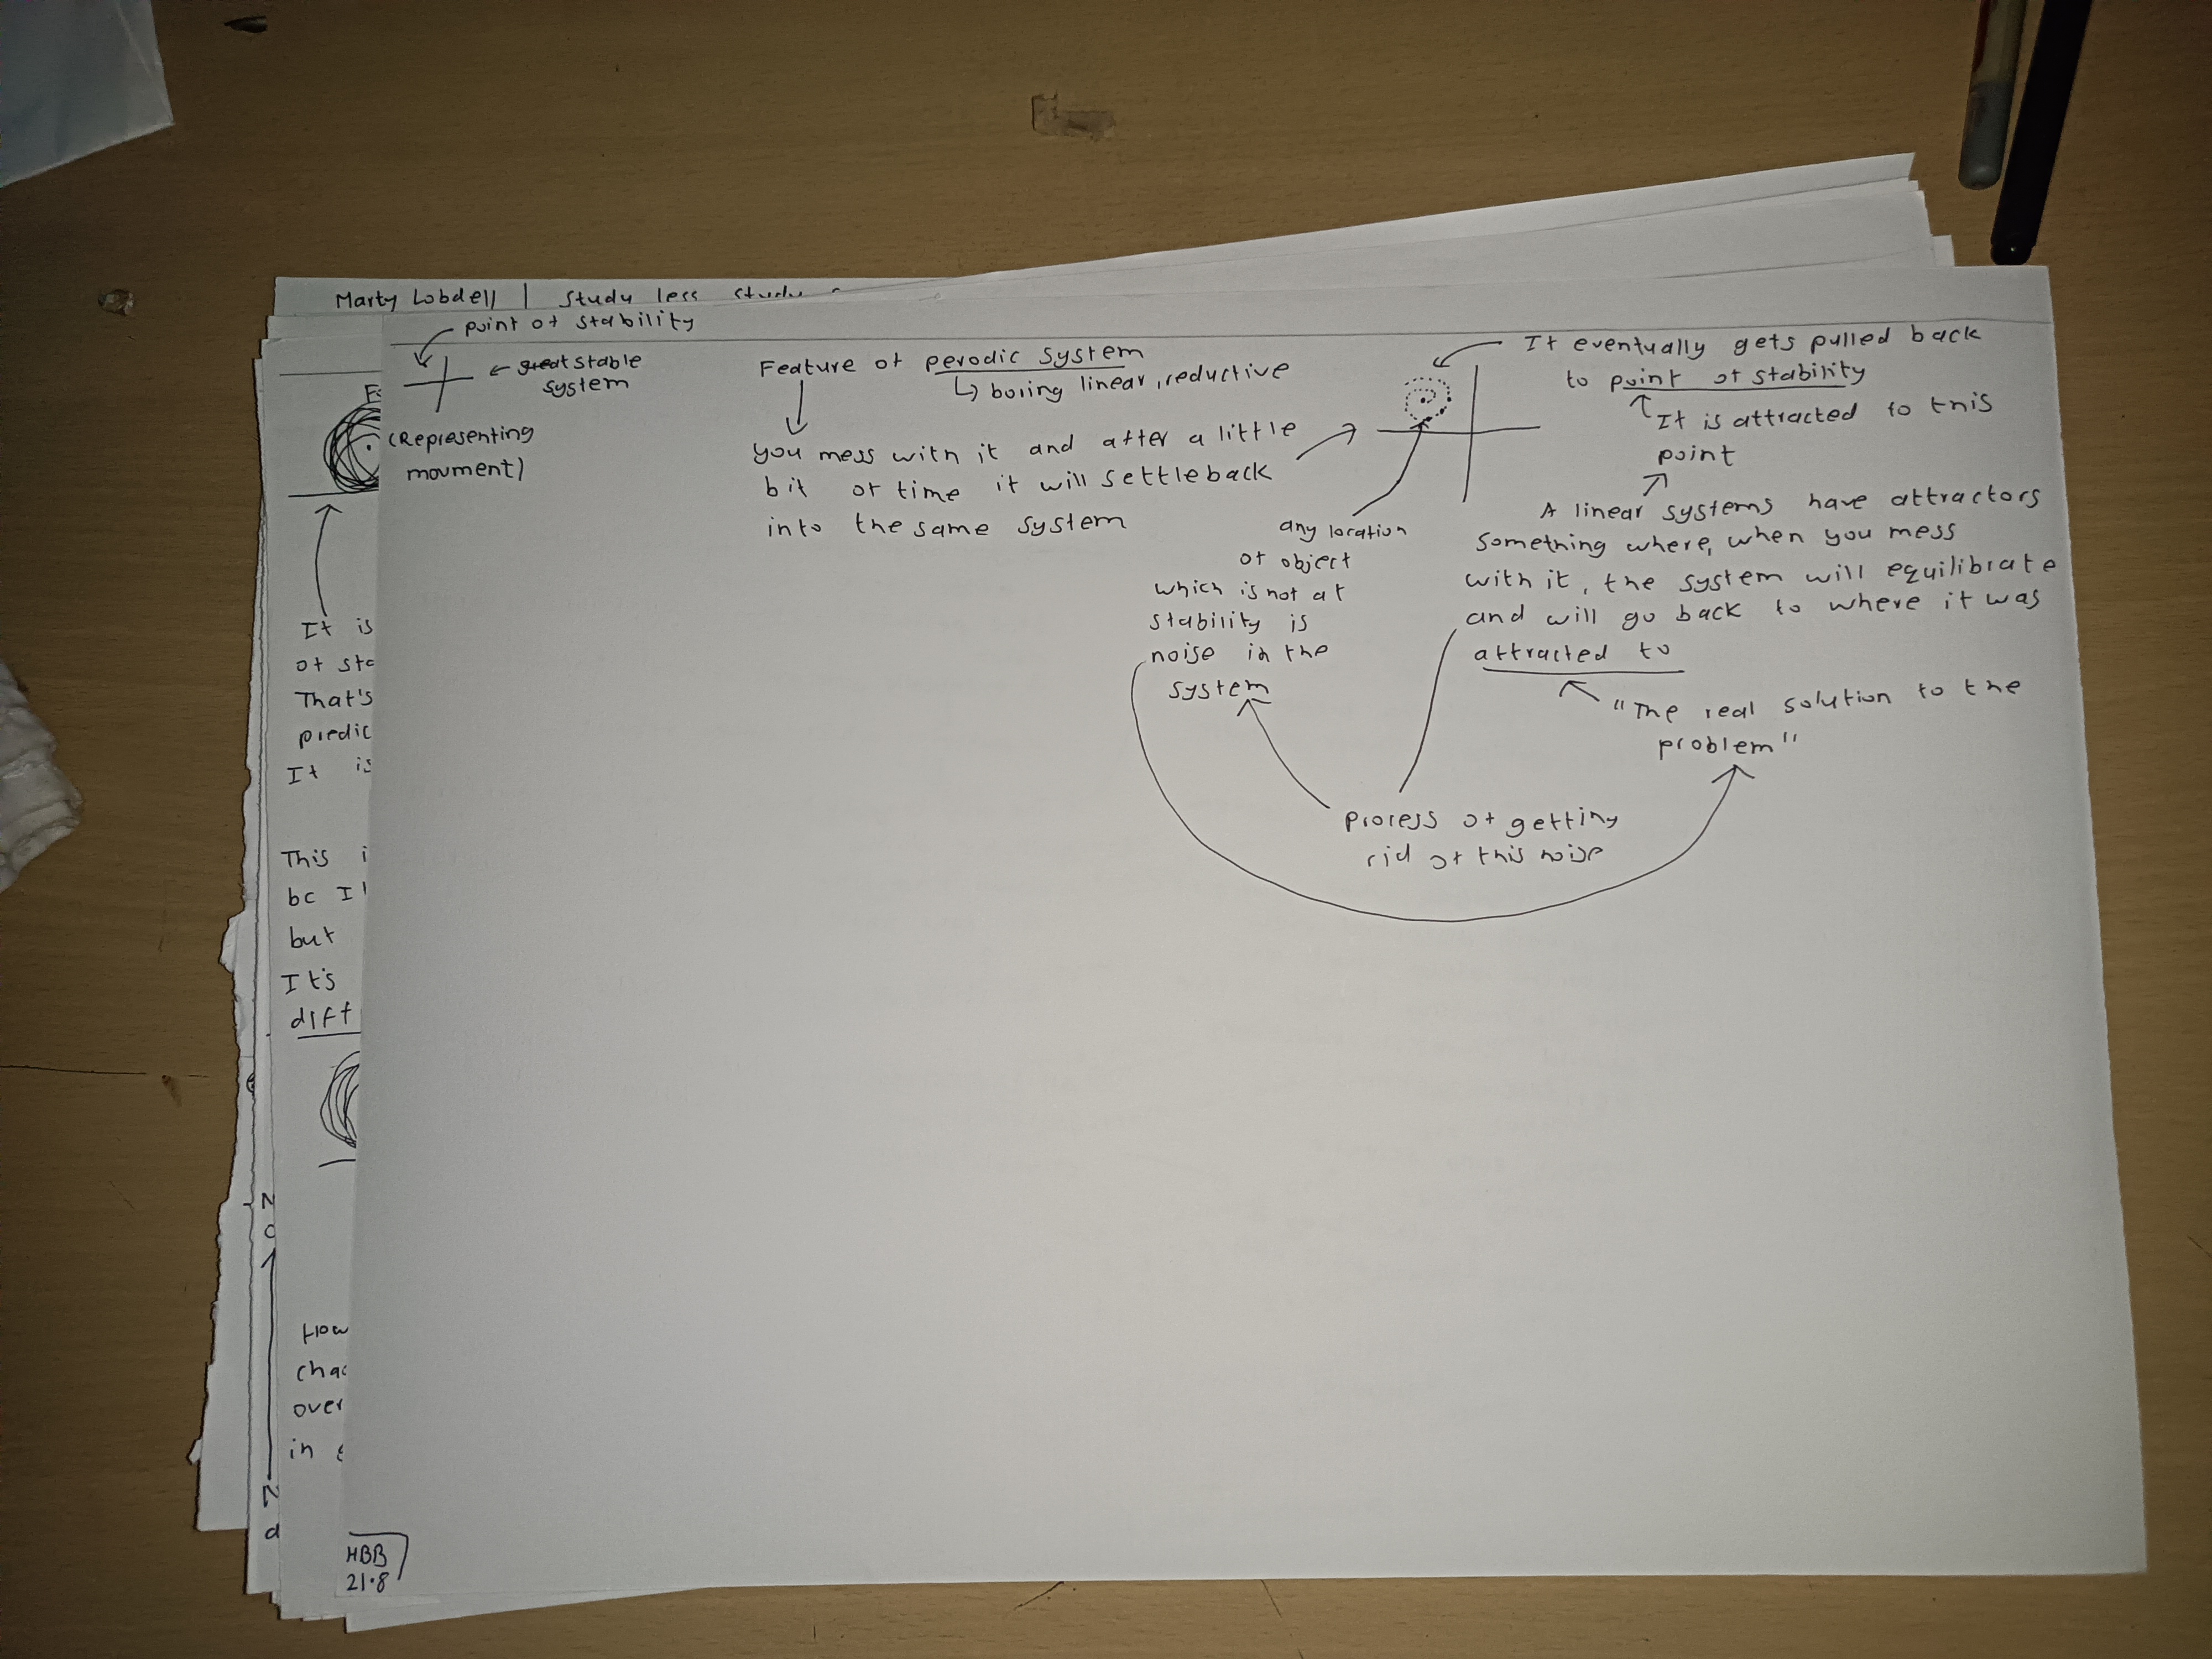 Marty Lobdell | Study less study
point of stability
great stable
system
(Representing
movment)
Feature of perodic system
↳ boring linear, reductive
you mess with it and after a little
bit of time it will settle back
into the same system
It eventually gets pulled back
to point of stability
It is attracted to this
point
A linear systems have attractors
something where, when you mess
with it, the system will equilibrate
and will go back to where it was
attracted to
"The real solution to the
problem"
any location
of object
which is not at
stability is
noise in the
system
process of getting
rid of this noise
It is
of
That's
It is
This
bc I
but
It's
over
in
HBB
21.8